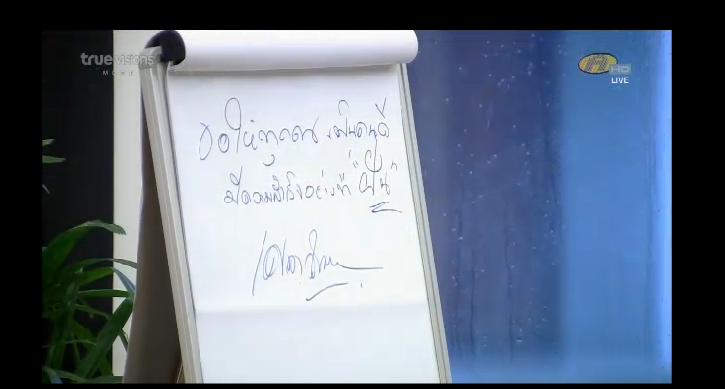 true visions
HD
LIVE
ขอให้ทุกคน เป็นคนดี
มีความสำเร็จอย่างที่ "ฝัน"